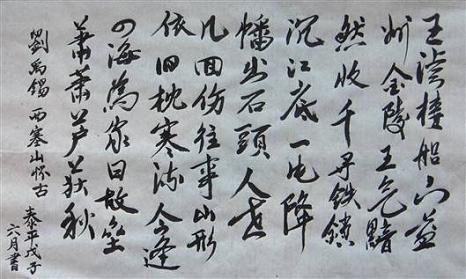 王濬樓船下益
州金陵王气黯
然收千寻鐵鎖
沉江底一片降
幡出石頭人世
几回伤往事山形
依旧枕寒流今逢
四海為家日故垒
萧萧芦荻秋
劉禹锡 西塞山怀古
戊子
六月書